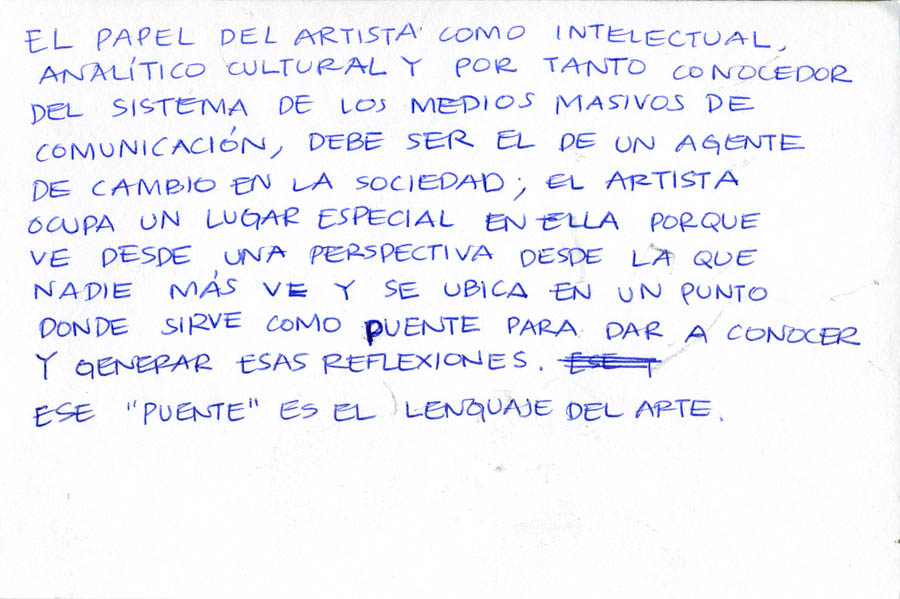 EL PAPEL DEL ARTISTA COMO INTELECTUAL,
ANALÍTICO CULTURAL Y POR TANTO CONOCEDOR
DEL SISTEMA DE LOS MEDIOS MASIVOS DE
COMUNICACIÓN, DEBE SER EL DE UN AGENTE
DE CAMBIO EN LA SOCIEDAD; EL ARTISTA
OCUPA UN LUGAR ESPECIAL EN ELLA PORQUE
VE DESDE UNA PERSPECTIVA DESDE LA QUE
NADIE MÁS VE Y SE UBICA EN UN PUNTO
DONDE SIRVE COMO PUENTE PARA DAR A CONOCER
Y GENERAR ESAS REFLEXIONES.
ESE "PUENTE" ES EL LENGUAJE DEL ARTE.